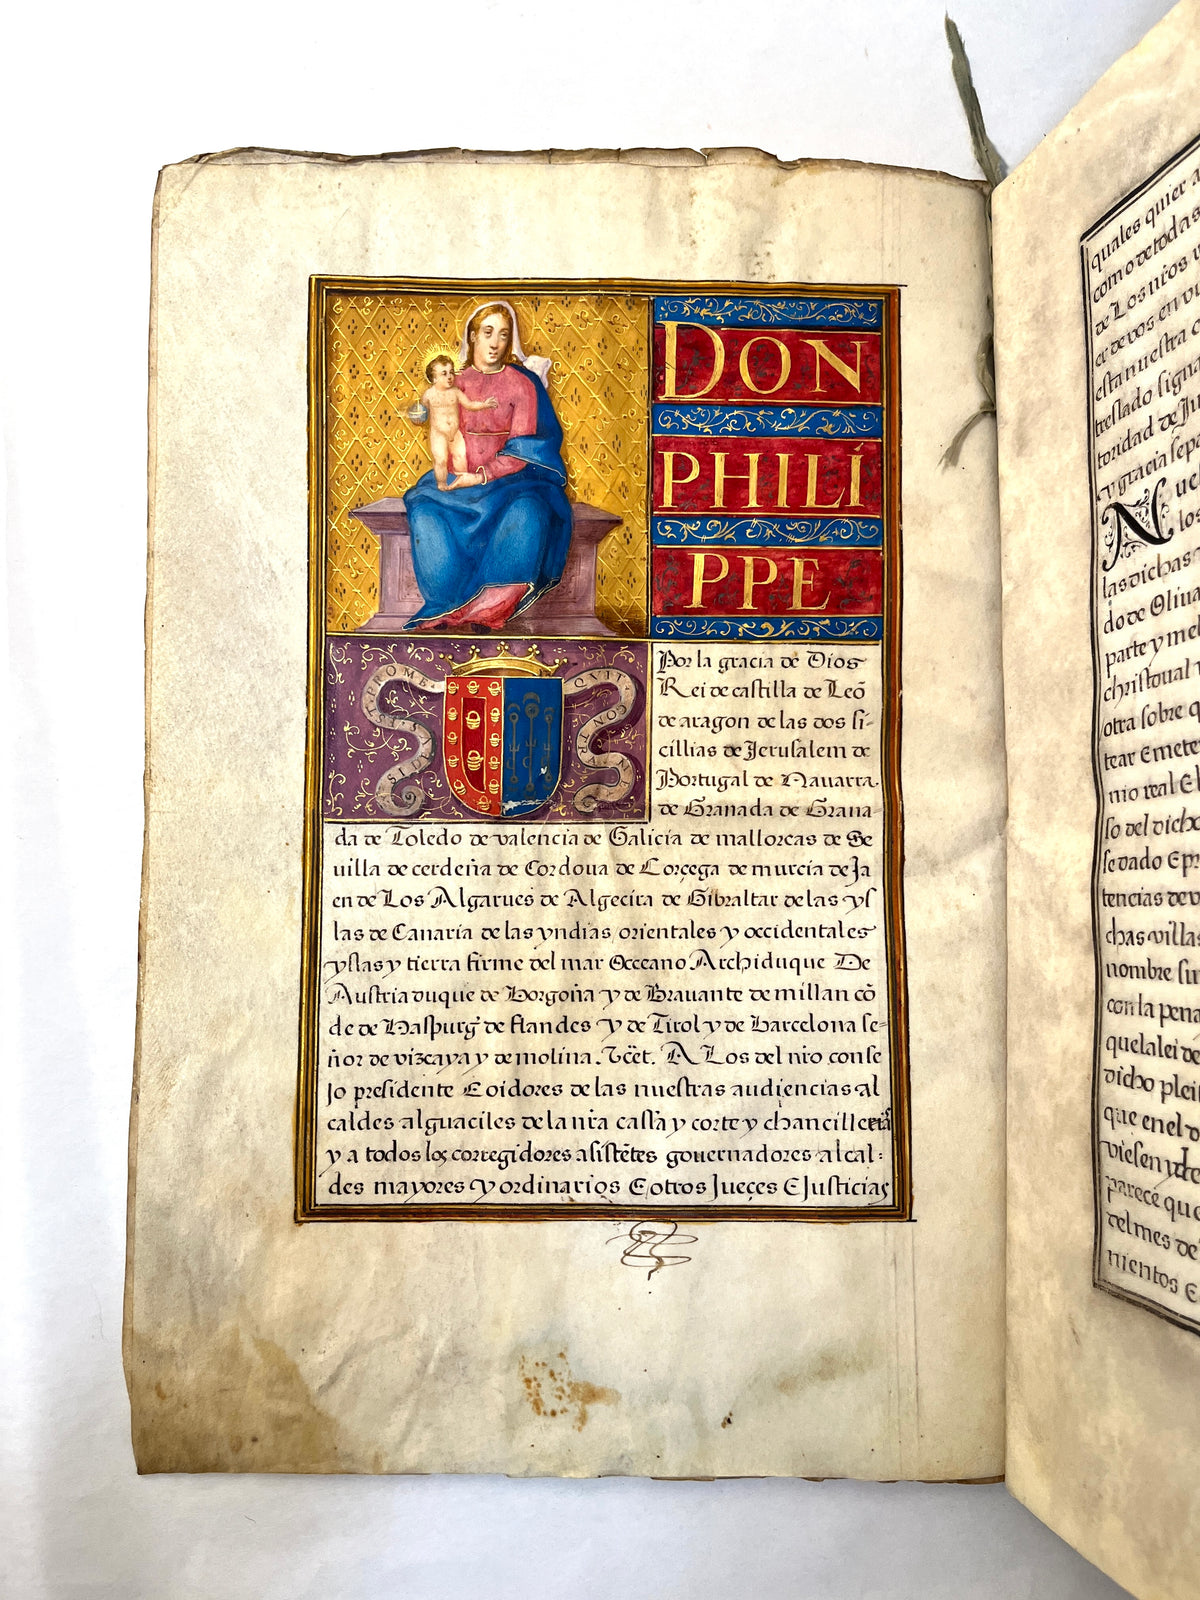 DON
PHILI
PPE
SI DEVS PRO ME
QVIT CONTRA ME
Por la gracia de Dios
Rei de castilla de Leō
de aragon de las dos si-
cillias de Jerusalem de
Portugal de Navarra.
de Granada de Grana
da de Toledo de valencia de Galicia de mallorcas de Se
villa de cerdeña de Cordova de Corçega de murcia de Ja
en de Los Algarues de Algecira de Gibraltar de las ys
las de Canaria de las yndias orientales y occidentales
yslas y tierra firme del mar Occeano Archiduque De
Austria duque de borgoña y de Bravante de millan cō
de de haspurg de flandes y de Tirol y de barcelona se=
ñor de vizcaya y de molina. A Los del nrō conse
Jo presidente E oidores de las nuestras audiencias al
caldes alguaciles de la nrā cassa y corte y chancilleria
y a todos los corregidores asistētes gouernadores alcal:
des mayores y ordinarios E otros Jueçes E Justicias
quales quier a
como de todas
de Los nrōs
er de vos en
esta nuestra c
treslado signa
toridad de Ju
y gracia sepa
Nue
los
las dichas
do de Oliua
parte y mel
christoual
otra sobre q
tear E mete
nio real E
so del dicho
se dado E pr
tencias de v
chas villas
nombre su
con la pena
que la lei de
dicho plei
que en el d
viesen y de
parece que
del mes de
nientos E